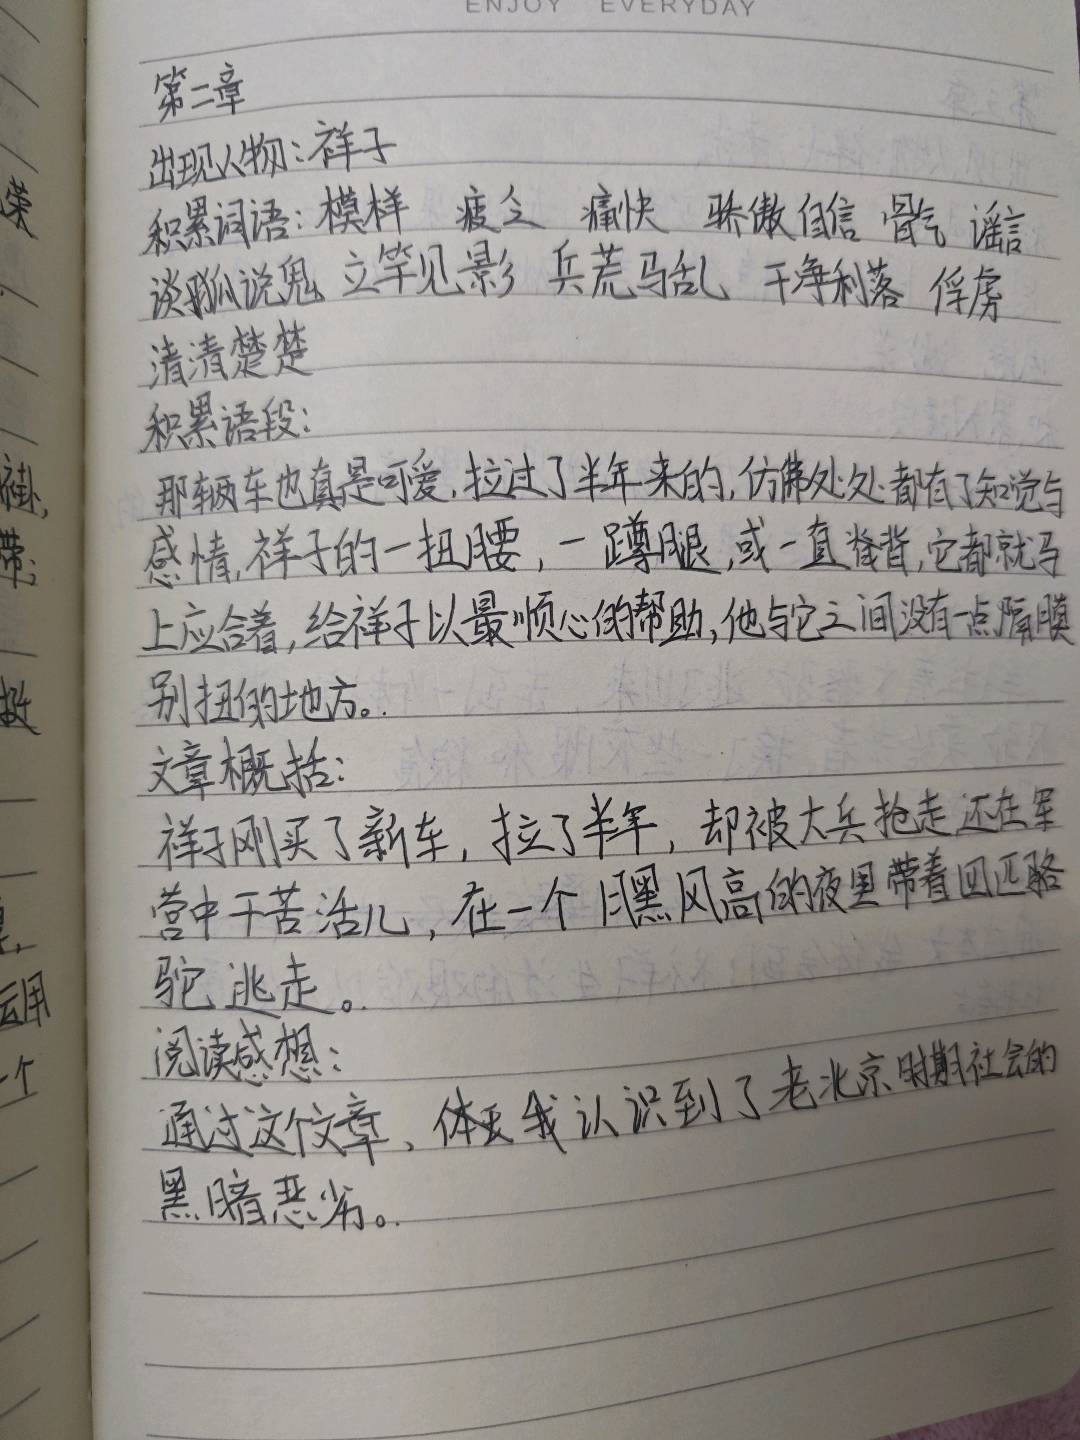 ENJOY EVERYDAY
第二章
出现人物：祥子
积累词语：模样 疲乏 痛快 骄傲自信 骨气 谣言
谈狐说鬼 立竿见影 兵荒马乱 干净利落 俘虏
清清楚楚
积累语段：
那辆车也真是可爱，拉过了半年来的，仿佛处处都有了知觉与
感情，祥子的一扭腰，一蹲腿，或一直脊背，它都就马
上应合着，给祥子以最顺心的帮助，他与它之间没有一点隔膜
别扭的地方。
文章概括：
祥子刚买了新车，拉了半年，却被大兵抢走还在军
营中干苦活儿，在一个月黑风高的夜里带着四匹骆
驼逃走。
阅读感想：
通过这个文章，体 我认识到了老北京时期社会的
黑暗恶劣。
荣
褂，
带；
运用
一个